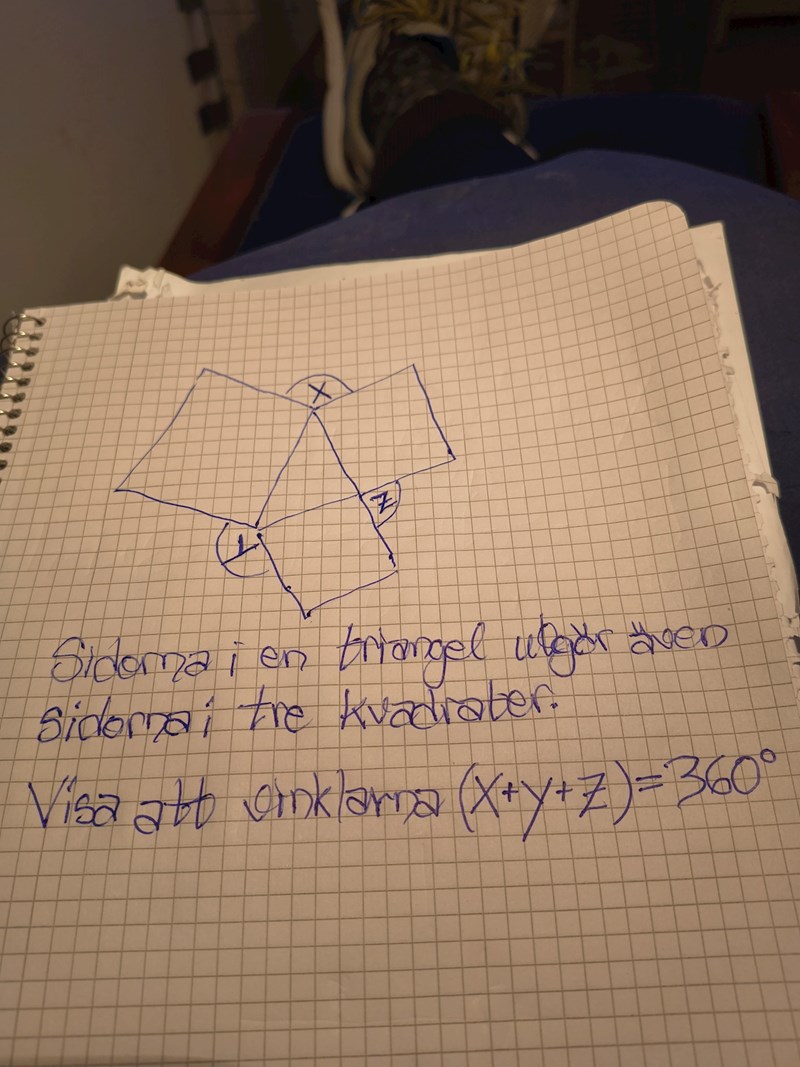 X
Z
Y
Sidorna i en triangel utgör även
sidorna i tre kvadrater.
Visa att vinklarna (x+y+z)=360°